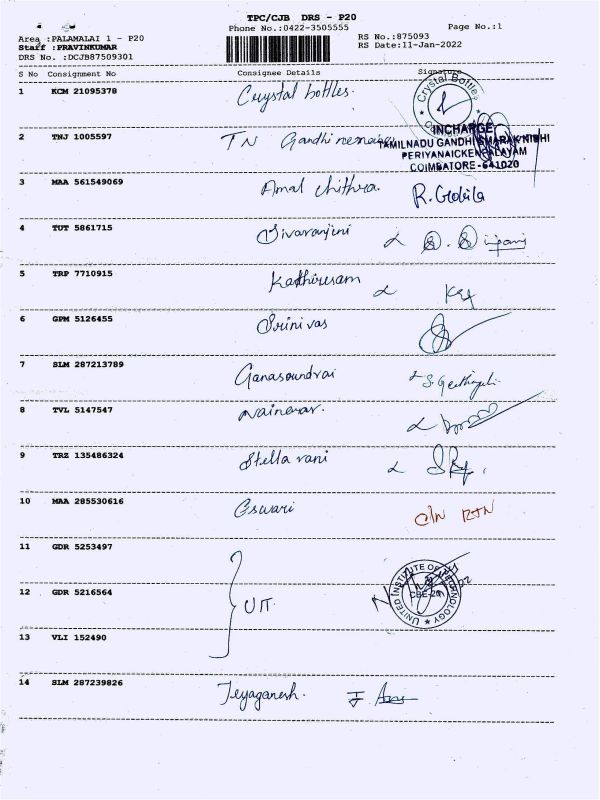 TPC/CJB DRS - P20
Phone No.:0422-3505555 Page No.:1
Area :PALAMALAI 1 - P20 RS No.:875093
Staff :PRAVINKUMAR RS Date:11-Jan-2022
DRS No. :DCJB87509301
S No Consignment No Consignee Details Signature
1 KCM 21095378 Crystal bottles. Crystal Bottles
2 TNJ 1005597 TN Gandhi INCHARGE
TAMILNADU GANDHI SMARAK NIDHI
PERIYANAICKENPALAYAM
COIMBATORE - 641020
3 MAA 561549069 Amal chithra. R. Gokila
4 TUT 5861715 Sivaranjini
5 TRP 7710915 Kathiresam
6 GPM 5126455 Srinivas
7 SLM 287213789 Ganasoundrai
8 TVL 5147547 Nainavar.
9 TRZ 135486324 Stella rani
10 MAA 285530616 Eswari C/N RTN
11 GDR 5253497
12 GDR 5216564 UIT. UNITED INSTITUTE OF TECHNOLOGY
CBE-20
13 VLI 152490
14 SLM 287239826 Jeyaganesh.